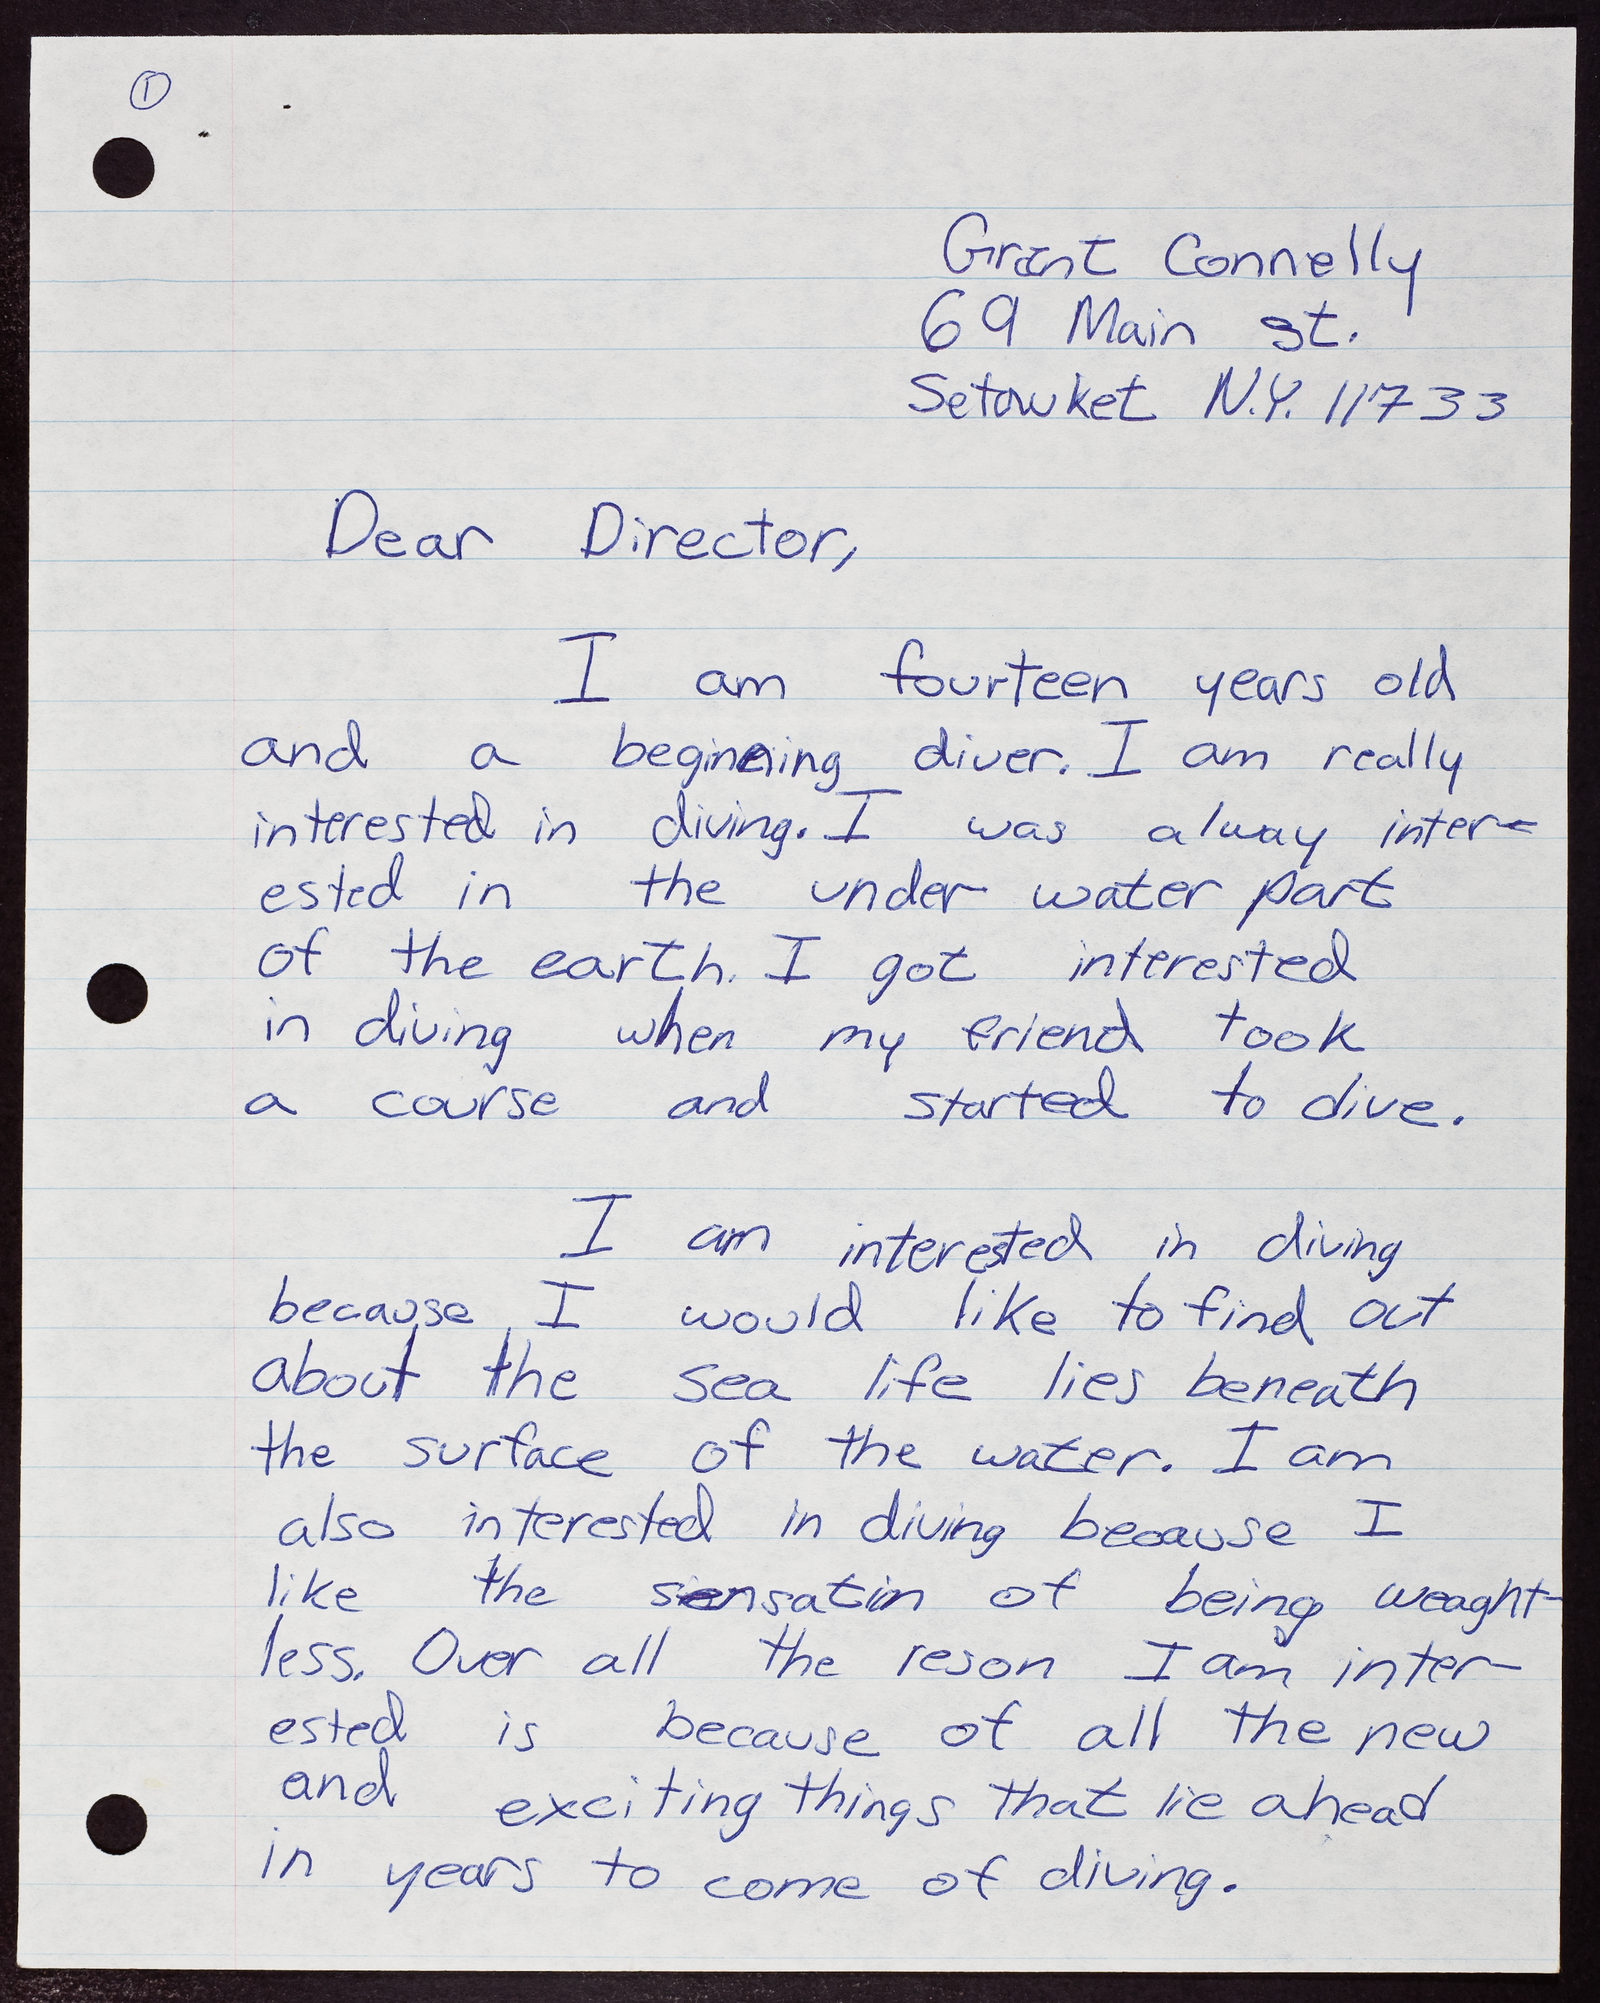 ①
Grant Connelly
69 Main st.
Setawket N.Y. 11733
Dear Director,
I am fourteen years old
and a beginning diver. I am really
interested in diving. I was alway inter-
ested in the under water part
of the earth. I got interested
in diving when my friend took
a course and started to dive.
I am interested in diving
because I would like to find out
about the sea life lies beneath
the surface of the water. I am
also interested in diving because I
like the sensatin of being weaght-
less. Over all the reson I am inter-
ested is because of all the new
and exciting things that lie ahead
in years to come of diving.